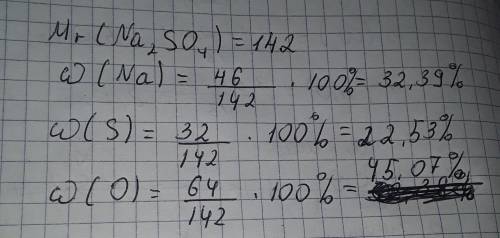 Mr(Na₂SO₄) = 142
ω(Na) = 46/142 · 100% = 32,39%
ω(S) = 32/142 · 100% = 22,53%
ω(O) = 64/142 · 100% = 45,07%